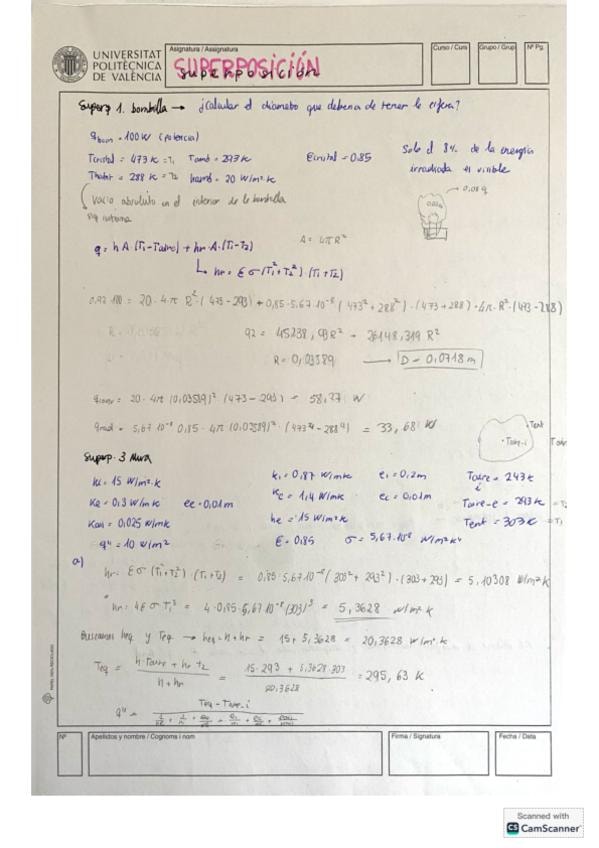 UNIVERSITAT
POLITÈCNICA
DE VALÈNCIA
Asignatura / Assignatura
SUPERPOSICIÓN
Curso / Curs
Grupo / Grup
Nº Pg.
Superp 1. bombilla → ¿Calcular el diámetro que debería de tener la esfera?
q bom = 100 W (potencia)
Tcristal = 473 K = T₁ Tamb = 293 K εcristal = 0.85
Solo el 8% de la energía
irradiada es visible
Thabit = 288 K = T₂ hamb = 20 W/m²·K
0.08 q
vacío absoluto en el interior de la bombilla
A = 4πR²
q = h A·(T₁-Taire) + hr·A·(T₁-T₂)
hr = ε σ (T₁² + T₂²)·(T₁+T₂)
0.92·100 = 20·4·π R²·(473-293) + 0,85·5,67·10⁻⁸ (473² + 288²)·(473 + 288)·4π·R²·(473-288)
92 = 45238,93R² + 26148,319 R²
R = 0,03589 → D = 0,0718 m
qconv = 20·4π (0,03589)² (473-293) = 58,27 W
qrad = 5,67·10⁻⁸ 0.85·4π(0,03589)²·(473⁴-288⁴) = 33,68 W
Tent
Taire-i
Superp. 3 Mura
ki = 15 W/m²·K
k₁ = 0,87 W/mK
e₁ = 0,2m
Taire = 243 K
i
ke = 0,3 W/mK
ee = 0,01m
kc = 1,4 W/mK
ec = 0,01m
Taire-e = 293 K = T₂
kais = 0,025 W/mK
he = 15 W/m²·K
Tent = 303K = T₁
q" = 10 W/m²
ε = 0,85
σ = 5,67·10⁻⁸ W/m²K⁴
a)
hr = ε σ (T₁² + T₂²)·(T₁ + T₂) = 0,85·5,67·10⁻⁸ (303² + 293²)·(303 + 293) = 5,10308 W/m²·K
hr = 4ε σ T₁³ = 4·0,85·5,67·10⁻⁸ (303)³ = 5,3628 W/m²·K
Buscamos heq y Teq → heq = h + hr = 15 + 5,3628 = 20,3628 W/m²·K
Teq = h·Taire + hr T₂ / h + hr = 15·293 + 5,3628·303 / 20,3628 = 295,63 K
q" = Teq - Taire-i
Nº
Apellidos y nombre / Cognoms i nom
Firma / Signatura
Fecha / Data
Scanned with
CS CamScanner